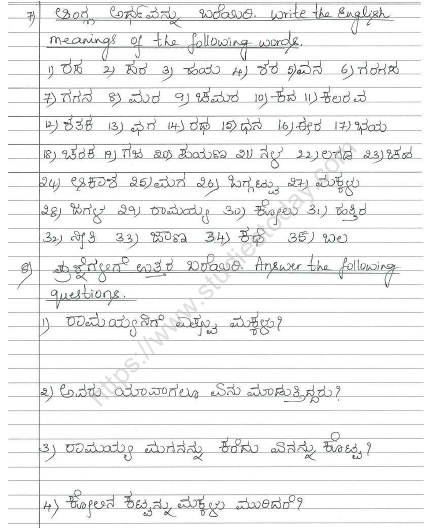 7) ಆಂಗ್ಲ ಅರ್ಥವನ್ನು ಬರೆಯಿರಿ. Write the English
meanings of the following words.
1) ರಸ 2) ಸರ 3) ಹಯ 4) ಶರ 5) ವನ 6) ಗರಗಸ
7) ಗಗನ 8) ಮರ 9) ಚಮರ 10) ಕದ 11) ಕಲರವ
12) ಶತಕ 13) ಖಗ 14) ರಥ 15) ಧನ 16) ಈರ 17) ಭಯ
18) ಚರಕ 19) ಗಜ 20) ಪಯಣ 21) ನಳ 22) ಲಗಾಮ 23) ಚಹ
24) ಆಕಾಶ 25) ಮಗ 26) ಒಗ್ಗಟ್ಟು 27) ಮಕ್ಕಳು
28) ಜಗಳ 29) ರಾಮಯ್ಯ 30) ಕೋಲು 31) ಹತ್ತಿರ
32) ನೀತಿ 33) ಜಾಣ 34) ಕಥೆ 35) ಬಲ
8) ಪ್ರಶ್ನೆಗಳಿಗೆ ಉತ್ತರ ಬರೆಯಿರಿ. Answer the following
questions.
1) ರಾಮಯ್ಯನಿಗೆ ಎಷ್ಟು ಮಕ್ಕಳು?
2) ಅವರು ಯಾವಾಗಲೂ ಏನು ಮಾಡುತ್ತಿದ್ದರು?
3) ರಾಮಯ್ಯ ಮಗನನ್ನು ಕರೆದು ಏನನ್ನು ಕೊಟ್ಟ?
4) ಕೋಲಿನ ಕಟ್ಟನ್ನು ಮಕ್ಕಳು ಮುರಿದರೆ?
https://www.studiestoday.com